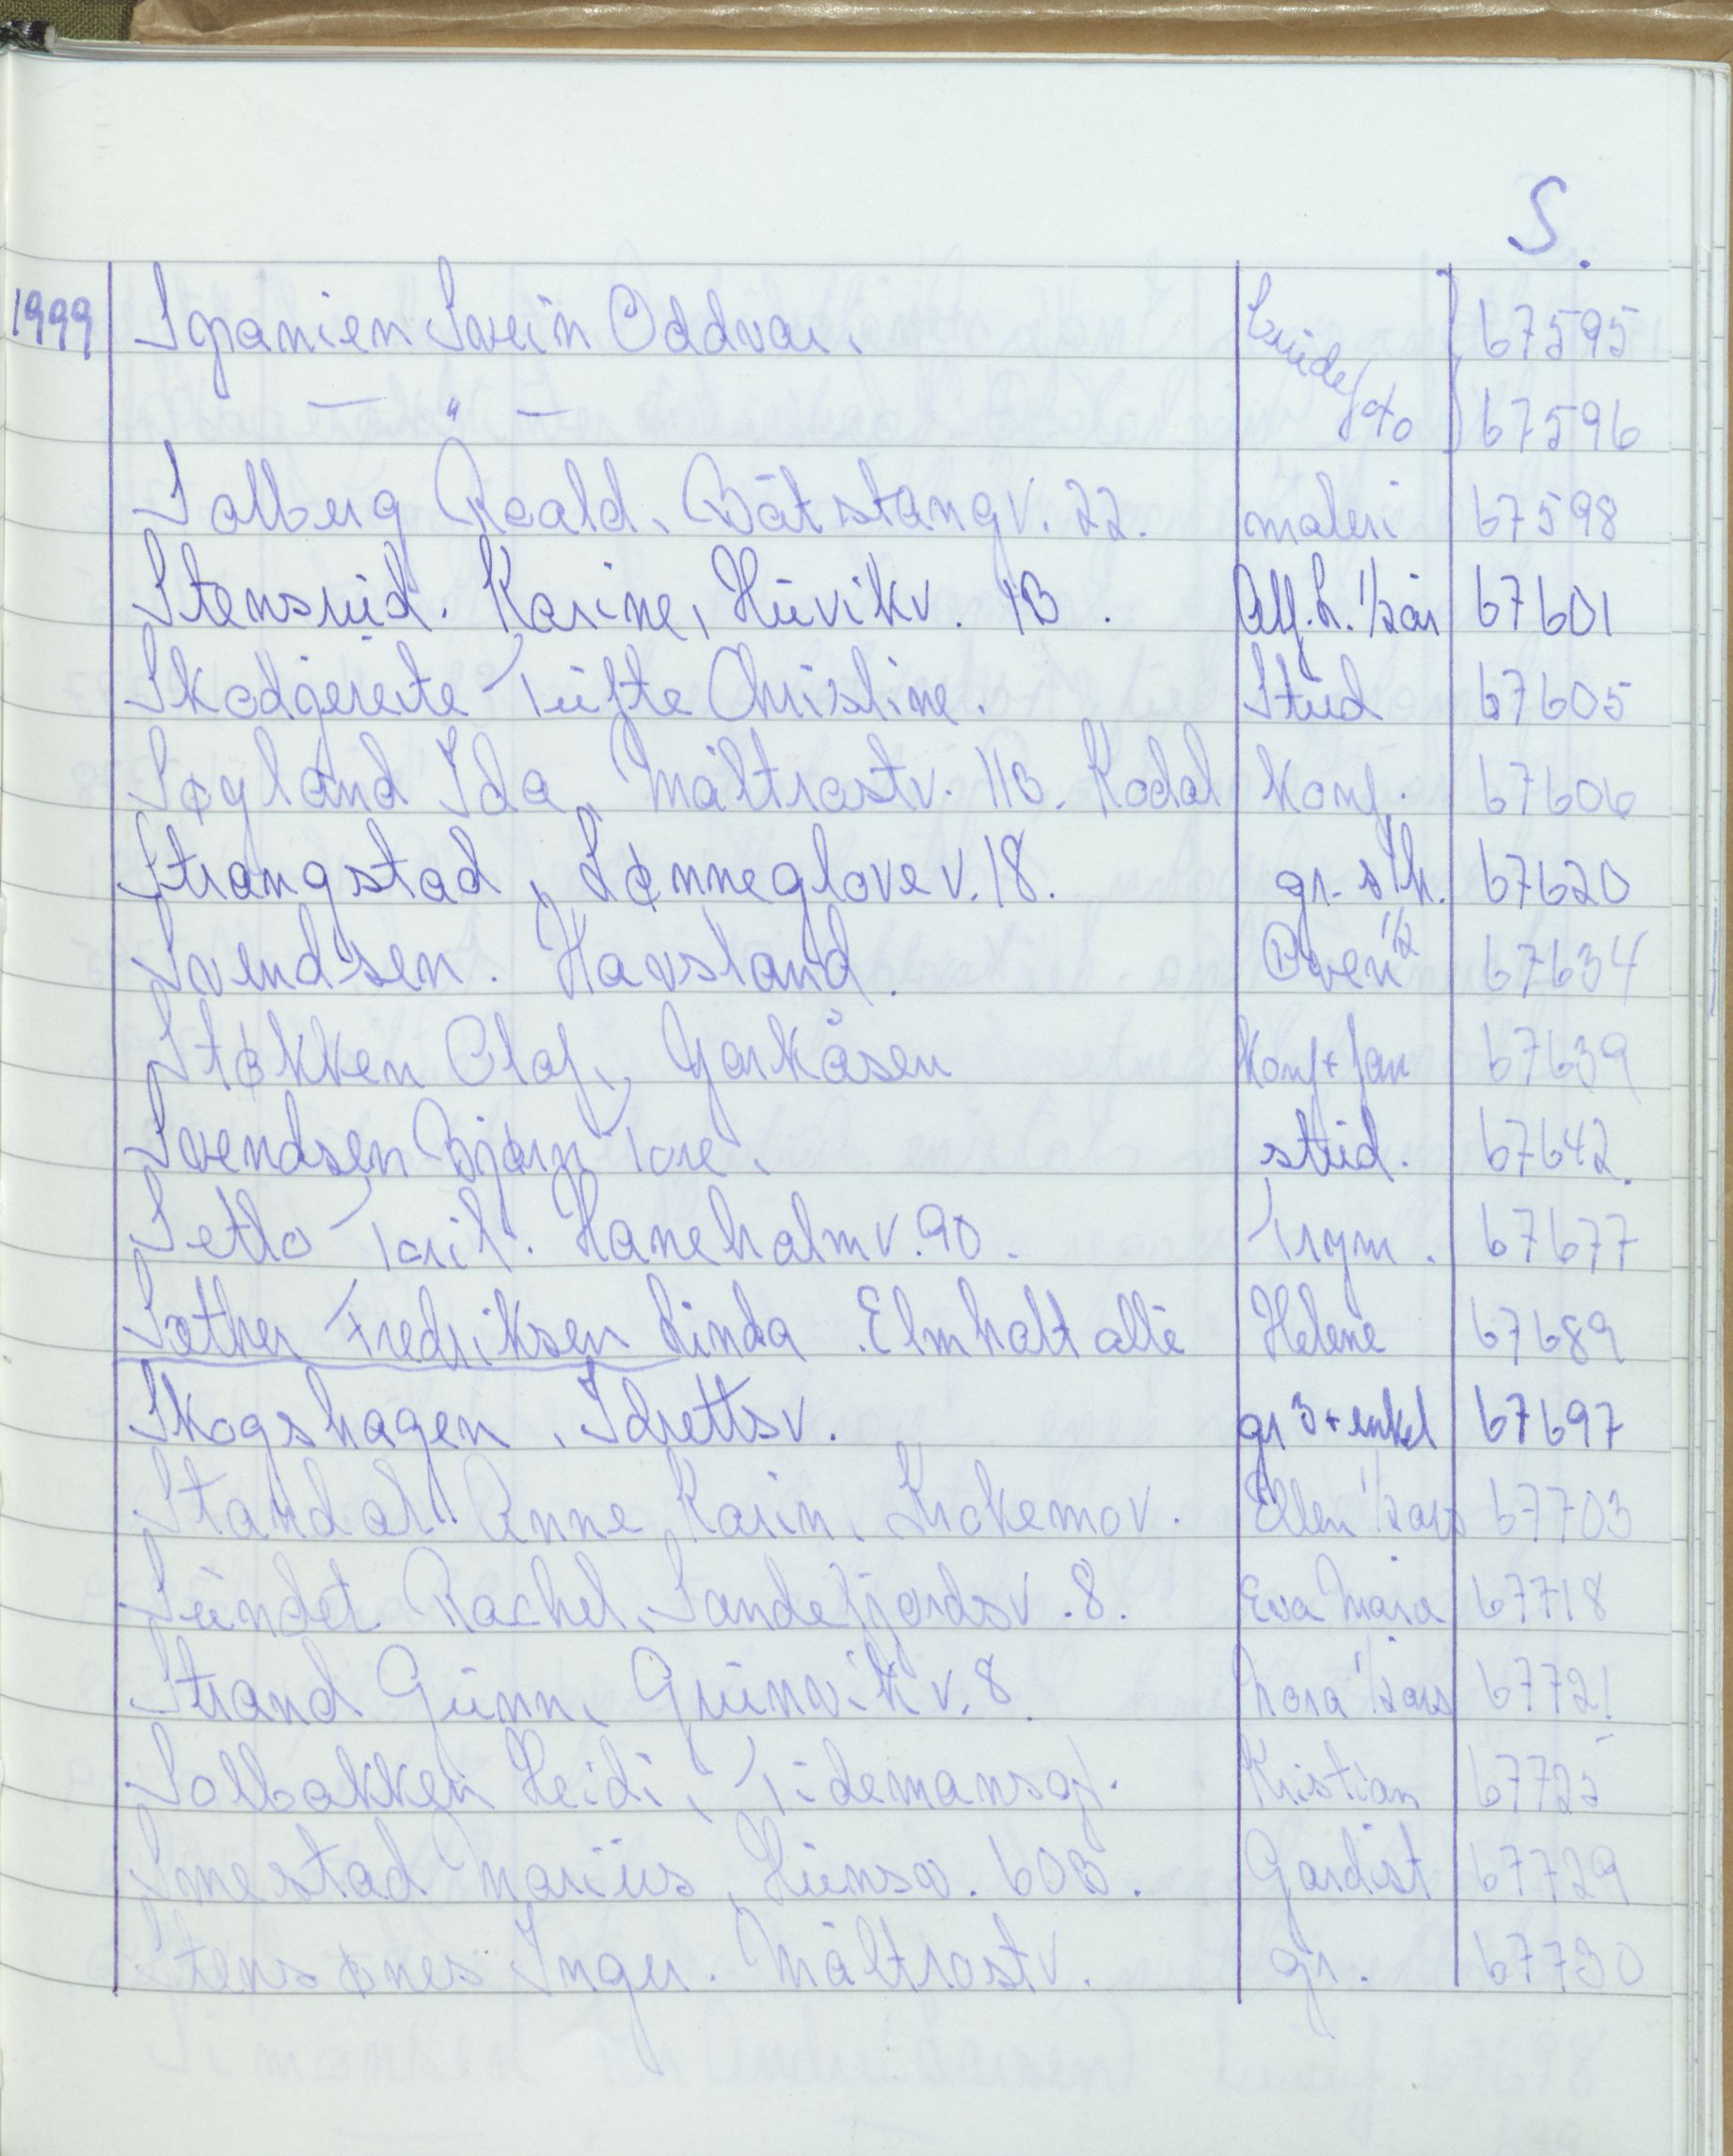 S.
1999 Spanien Svein Oddvar. Brude/ 67595
— " — 67596
Solberg Roald. Båtstangv. 22. maleri 67598
Stensrud. Karine, Huvikv. 1B. Alf. h. 1/2 år 67601
Skodgereite Tufte Christine. Stud 67605
Søyland Ida, Måltrostv. 11B. Kodal Konf. 67606
Strangstad, Lønneglovev. 18. gr. slk. 67620
Svendsen. Havsland. Oven 1/2 67634
Støkken Olaf, Gorkåsen Konf + fam 67639
Svendsen Bjørn Tore. stud. 67642.
Setlo Toril. Haneholmv. 90. Trym. 67677
Sæther Fredriksen Linda. Elmholt alle Helene 67689
Skogshagen. Idrettsv. gr 3 + enkel 67697
Standal Anne Karin, Krokemov. Ellen 1/2 års 67703
Sundet Rachel, Sandefjordsv. 8. Eva Maria 67718
Strand Gunn, Grunnvikv. 8. Nora 1/2 års 67721
Solbakken Heidi, Tidemansgt. Kristian 67725
Smestad Marius, Hunsv. 60B. Gardist 67729
Stensønes Inger. Måltrostv. gr. 67730